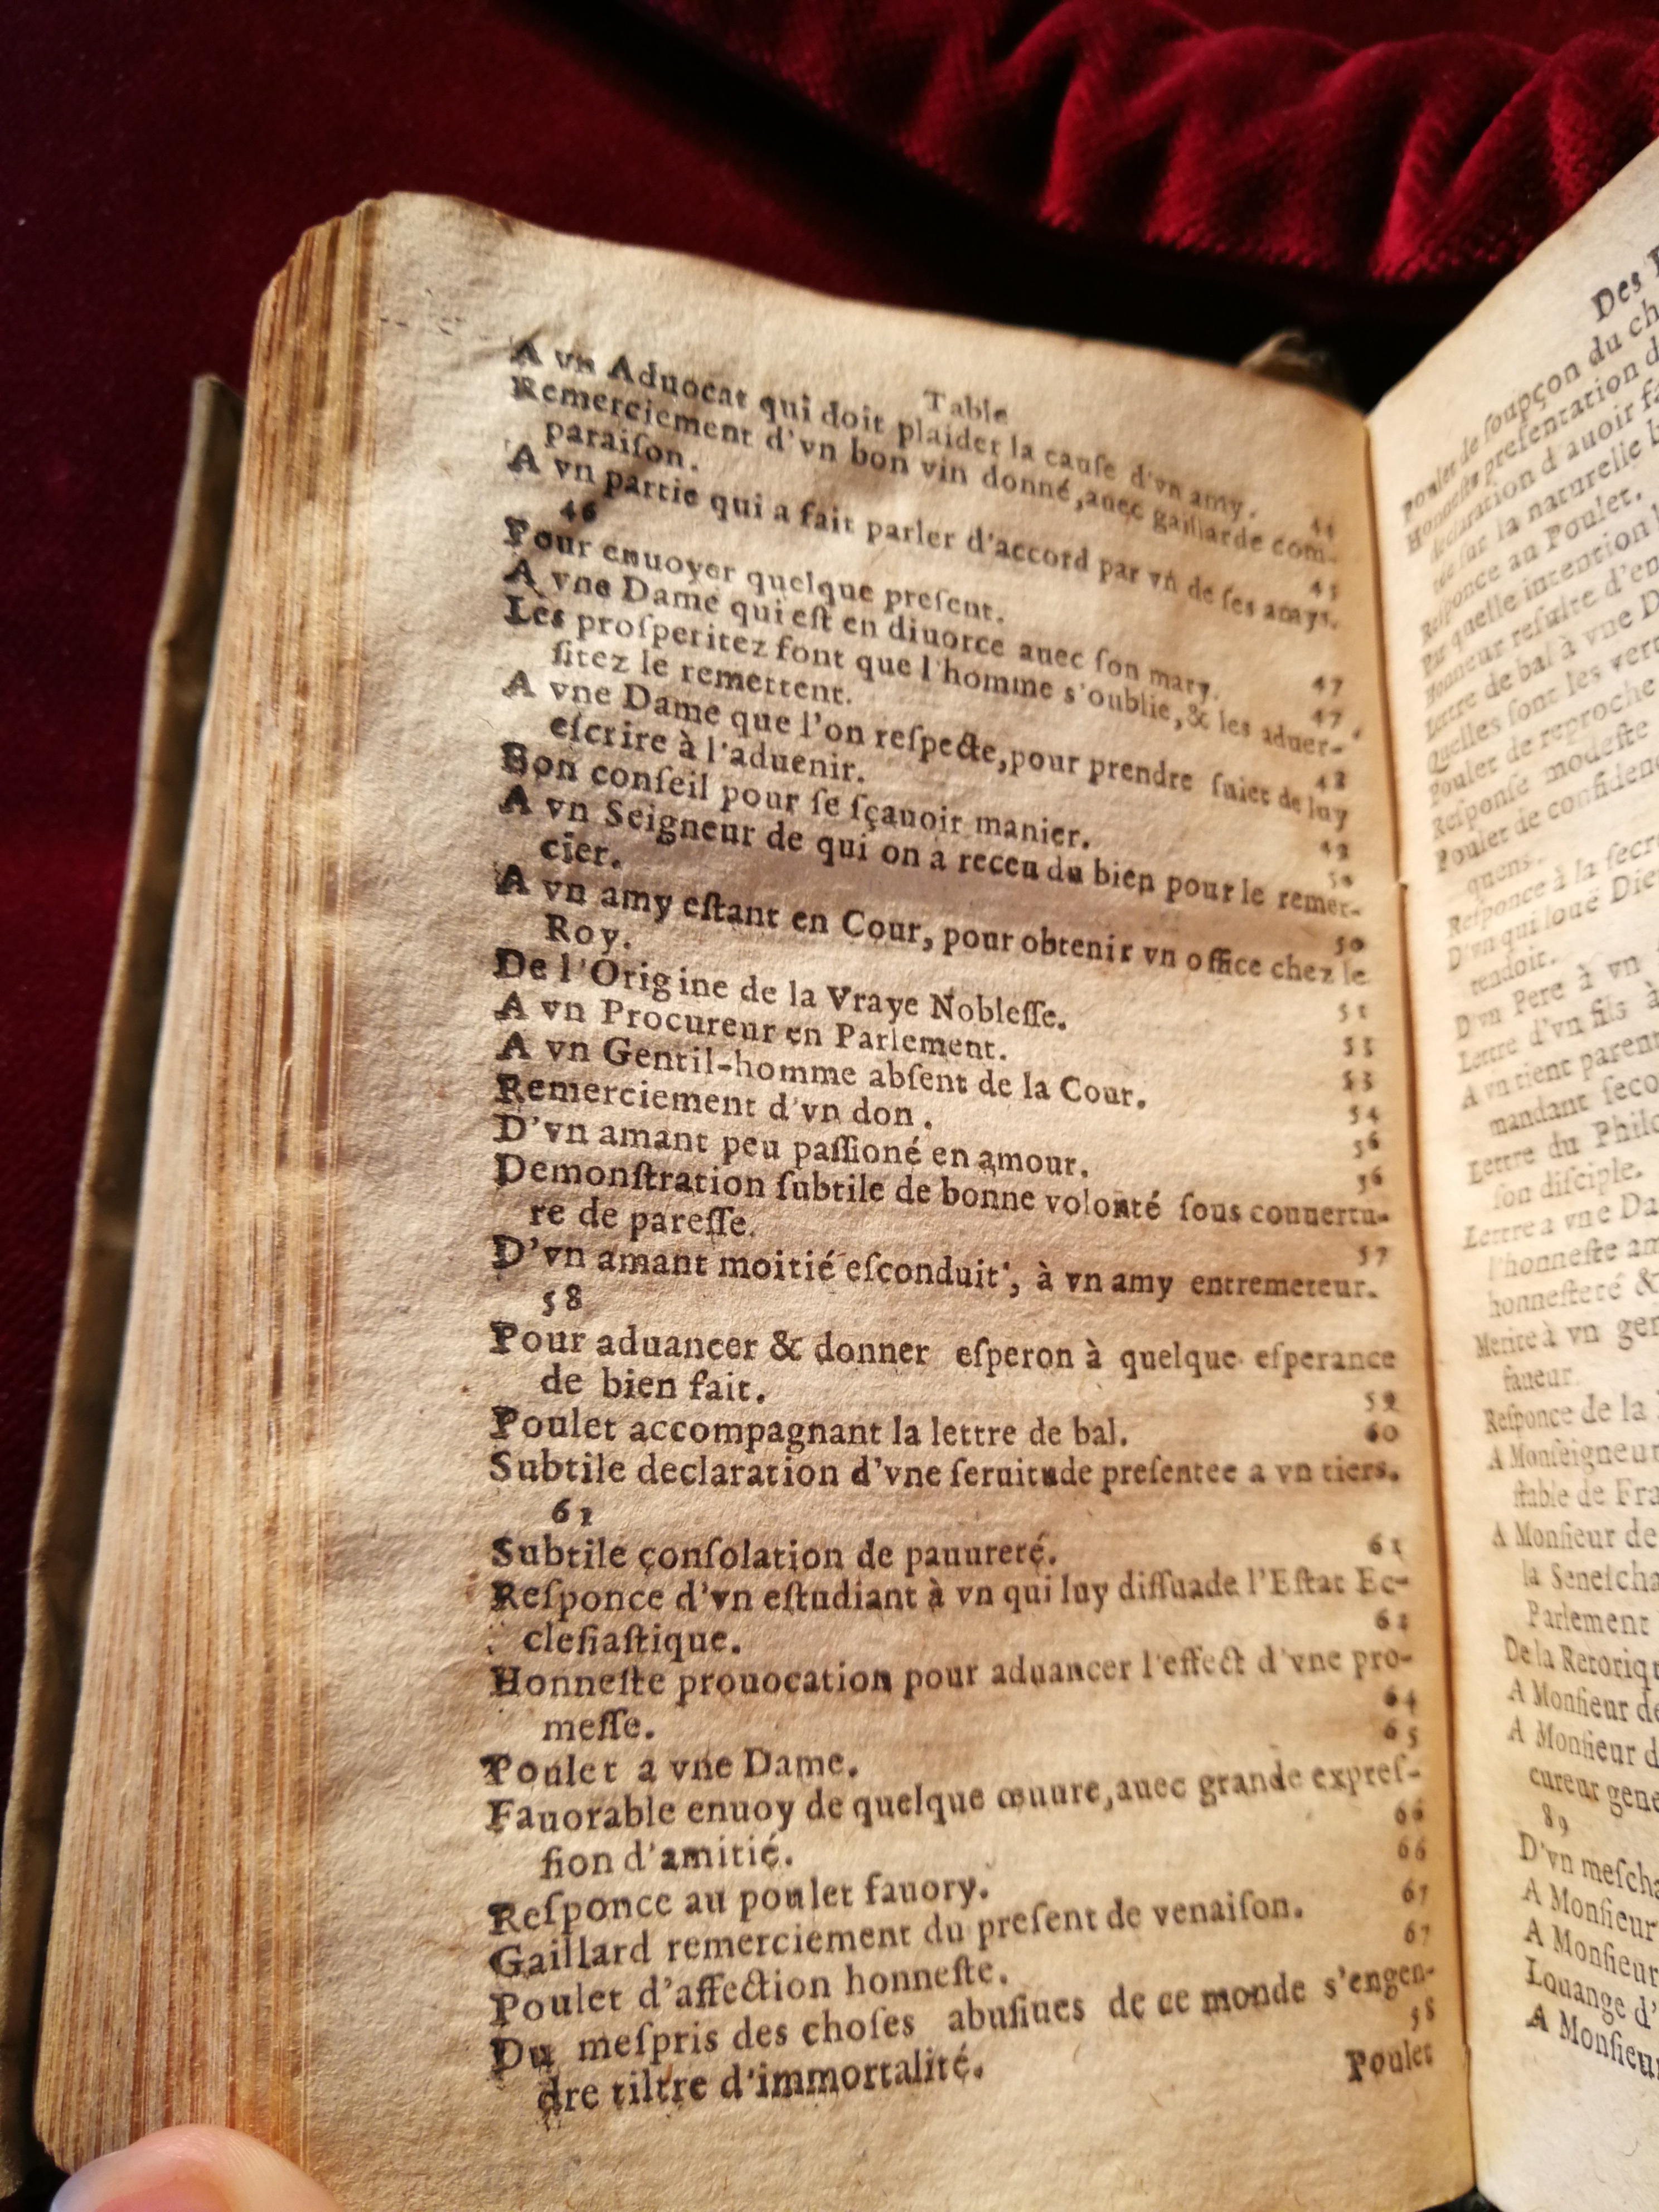 Table
A vn Aduocat qui doit plaider la cauſe d'vn amy. 44
Remerciement d'vn bon vin donné, auec gaillarde com-
paraiſon. 45
A vn partie qui a fait parler d'accord par vn de ſes amys.
46
Pour enuoyer quelque preſent. 47
A vne Dame qui eſt en diuorce auec ſon mary. 47
Les proſperitez font que l'homme s'oublie, & les aduer-
ſitez le remettent. 48
A vne Dame que l'on reſpecte, pour prendre ſuiet de luy
eſcrire à l'aduenir. 49
Bon conſeil pour ſe ſçauoir manier. 50
A vn Seigneur de qui on a receu du bien pour le remer-
cier. 50
A vn amy eſtant en Cour, pour obtenir vn office chez le
Roy. 51
De l'Origine de la Vraye Nobleſſe. 53
A vn Procureur en Parlement. 53
A vn Gentil-homme abſent de la Cour. 54
Remerciement d'vn don. 56
D'vn amant peu paſſioné en amour. 56
Demonſtration ſubtile de bonne volonté ſous couuertu-
re de pareſſe. 57
D'vn amant moitié eſconduit, à vn amy entremeteur.
58
Pour aduancer & donner eſperon à quelque eſperance
de bien fait. 59
Poulet accompagnant la lettre de bal. 60
Subtile declaration d'vne ſeruitude preſentee a vn tiers.
61
Subtile conſolation de pauureté. 61
Reſponce d'vn eſtudiant à vn qui luy diſſuade l'Eſtat Ec-
cleſiaſtique. 62
Honneſte prouocation pour aduancer l'effect d'vne pro-
meſſe. 64
Poulet a vne Dame. 65
Fauorable enuoy de quelque œuure, auec grande expreſ-
ſion d'amitié. 66
Reſponce au poulet fauory. 66
Gaillard remerciement du preſent de venaiſon. 67
Poulet d'affection honneſte. 67
Du meſpris des choſes abuſiues de ce monde s'engen-
dre tiltre d'immortalité. 58
Poulet
Des
Poulet de ſoupçon du
Honneſte preſentation
declaration d'auoir
ſur la naturelle
Reſponce au Poulet.
Par quelle intention
Honneur reſulte d'en
Lettre de bal à vne
Quelles ſont les
Poulet de reproche
Reſponſe modeſte
Poulet de
quens.
Reſponce à la
D'vn qui louë
rendoit.
D'vn Pere à vn
Lettre d'vn fils à
A vn tient
mandant
Lettre du
ſon diſciple.
Lettre a vne
l'honneſte
honneſteté &
Merite à vn
faueur.
Reſponce de la
A Monſeigneur
ſtable de
A Monſieur de
la
Parlement
De la
A Monſieur
A Monſieur
cureur
89
D'vn
A Monſieur
A Monſieur
Louange
A Monſieur